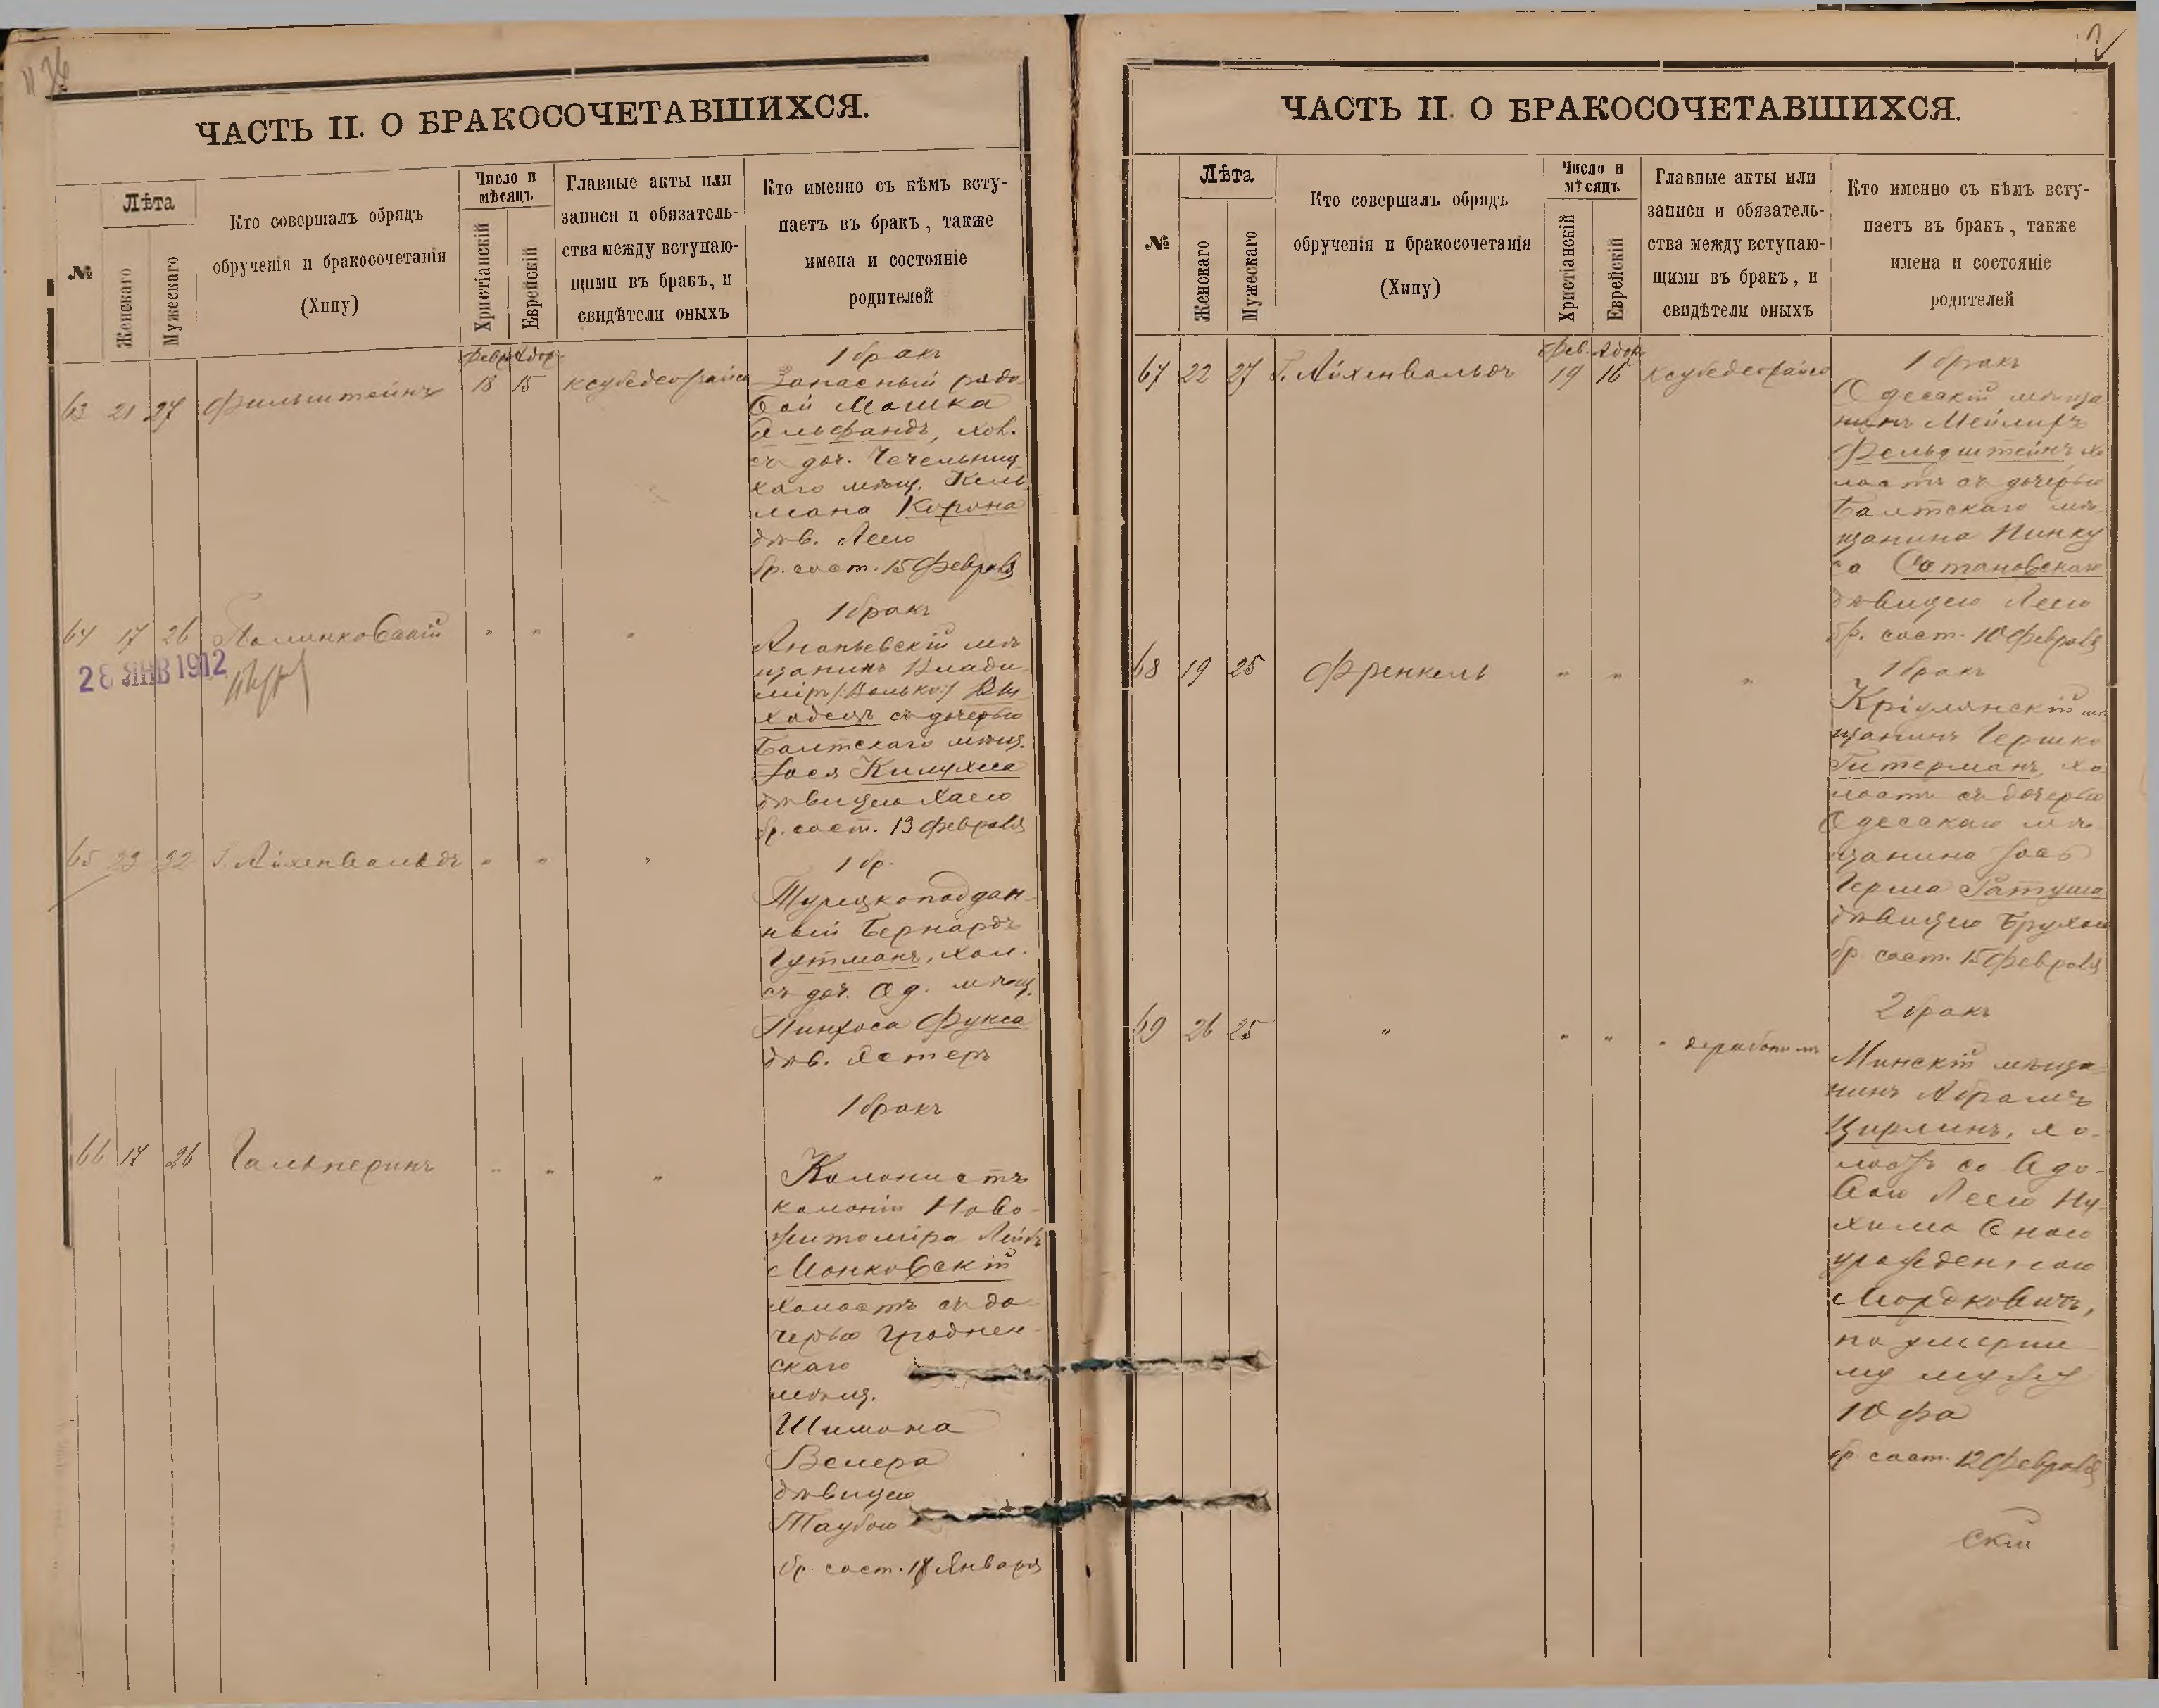 ЧАСТЬ II. О БРАКОСОЧЕТАВШИХСЯ.
№
Лѣта
Женскаго
Мужескаго
Кто совершалъ обрядъ
обрученія и бракосочетанія
(Хипу)
Число и
мѣсяцъ
Христіанскій
Еврейскій
Главные акты или
записи и обязатель-
ства между вступаю-
щими въ бракъ, и
свидѣтели оныхъ
Кто именно съ кѣмъ всту-
паетъ въ бракъ, также
имена и состояніе
родителей
63 21 27 Фильштейнъ
Февр. Адор.
18 15
1 бракъ
Запасный рядо
вой Мошка
Альфандъ, хол.
съ доч. Чечельниц
каго мѣщ. Кель
мана Корона
дѣв. Леею
бр. сост. 15 Февраля
64 17 26
" " "
28 ЯНВ 1912
1 бракъ
Ананьевскій мѣ
щанинъ Влади
міръ /:Волько:/ Вы
ходецъ съ дочерью
Балтскаго мѣщ.
дѣвицею Хаею
бр. сост. 13 Февраля
65 23 32 Г. Айхенвальдъ " " "
1 бр.
Турецкоподдан-
ный Бернардъ
Гутманъ, хол.
съ доч. Од. мѣщ.
Пинхоса Фукса
дѣв. Эстеръ
1 бракъ
66 17 26 Гальперинъ " " "
Колонистъ
колоніи Ново-
житоміра Лейбъ
Монковскій
холостъ съ до-
черью Гроднен-
скаго
мѣщ.
Шимона
Велера
дѣвицею
Таубою
бр. сост. 18 Января
ЧАСТЬ II. О БРАКОСОЧЕТАВШИХСЯ.
№
Лѣта
Женскаго
Мужескаго
Кто совершалъ обрядъ
обрученія и бракосочетанія
(Хипу)
Число и
мѣсяцъ
Христіанскій
Еврейскій
Главные акты или
записи и обязатель-
ства между вступаю-
щими въ бракъ, и
свидѣтели оныхъ
Кто именно съ кѣмъ всту-
паетъ въ бракъ, также
имена и состояніе
родителей
67 22 27 Г. Айхенвальдъ
Фев. Адор.
19 16
1 бракъ
Одесскій мѣща
нинъ Мейлихъ
Фельдштейнъ хо
лостъ съ дочерью
Балтскаго мѣ-
щанина Пинку
са Сатановскаго
дѣвицею Леею
бр. сост. 10 Февраля
68 19 25 Френкель " " "
1 бракъ
Кріулянскій мѣ
щанинъ Гершко
Гитерманъ, хо
лостъ съ дочерью
Одесскаго мѣ
щанина Іось
Герша Ратуша
дѣвицею Брухою
бр. сост. 15 Февраля
2 бракъ
69 26 25 " " " "
Минскій мѣща
нинъ Абрамъ
Цирлинъ, хо-
лостъ со вдо-
вою Леею Ну-
урожденною
Мордковичъ,
по умерше
му мужу
бр. сост. 12 Февраля
скій